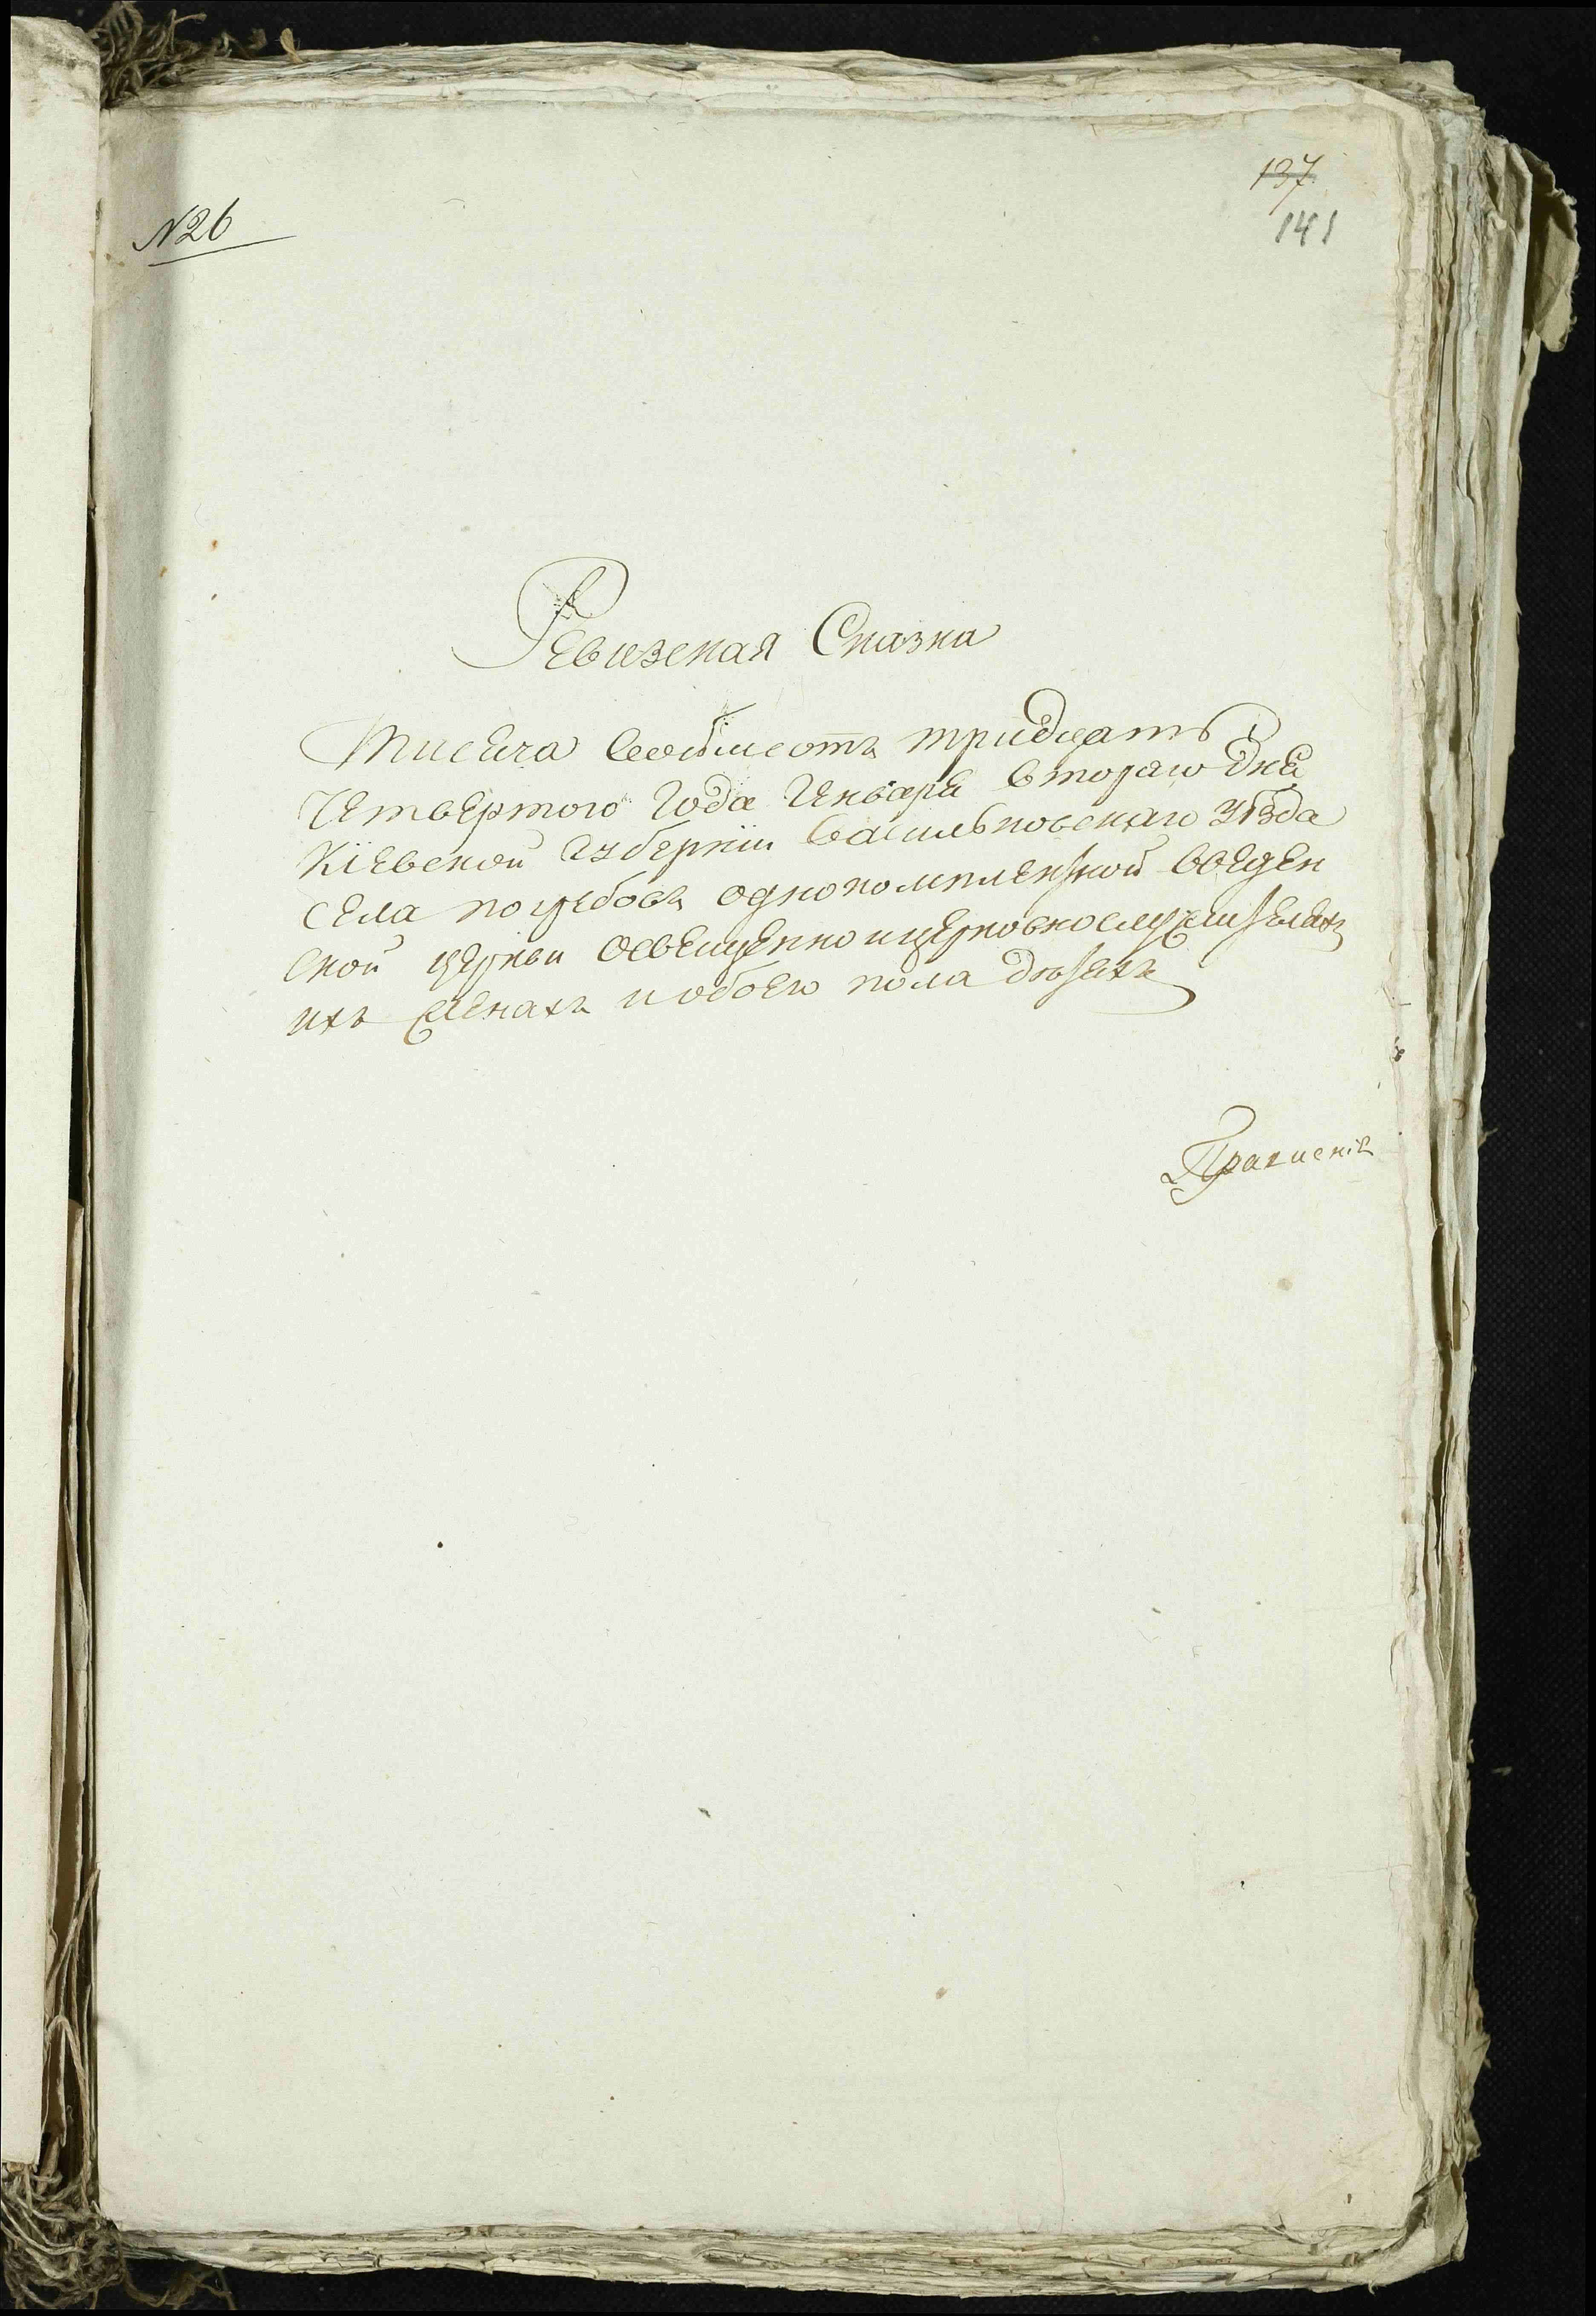 137
141
N26
Ревизская Сказка
Тисеча восѣмсотъ тридцать
Четвертого Года Генваря второго дня
Кіевской Губерніи васильковскаго уѣзда
села погребовъ однокомплектной введен
ской церкви освещенно и церковнослужителяхъ
ихъ женахъ и обоего пола дѣтехъ